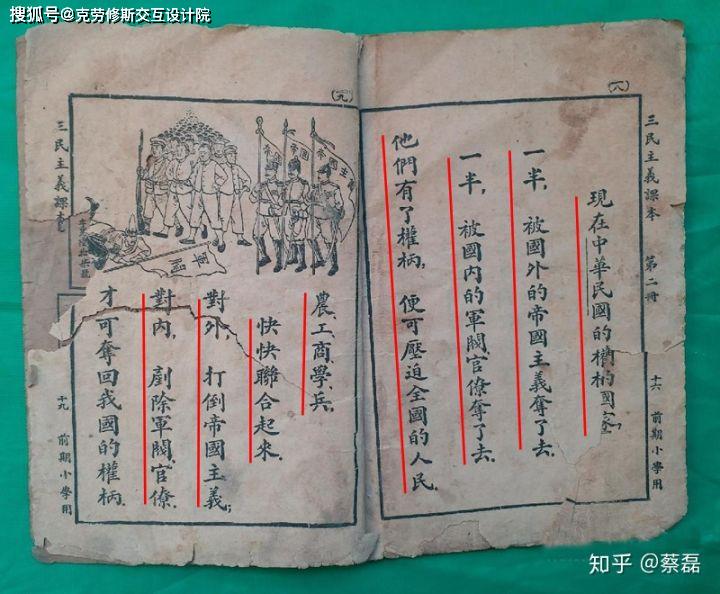 搜狐号@克劳修斯交互设计院
(一八)
三民主義課本 第二冊
十六 前期小學用
現在中華民國的權柄國
一半，被國外的帝國主義奪了去，
一半，被國內的軍閥，官僚奪了去。
他們有了權柄，便可壓迫全國的人民。
(一九)
國
帝國主義
軍閥
農，工，商，學，兵，
快快聯合起來。
對外，打倒帝國主義；
對內，剷除軍閥，官僚，
才可奪回我國的權柄。
三民主義課本
十九 前期小學用
知乎 @蔡磊